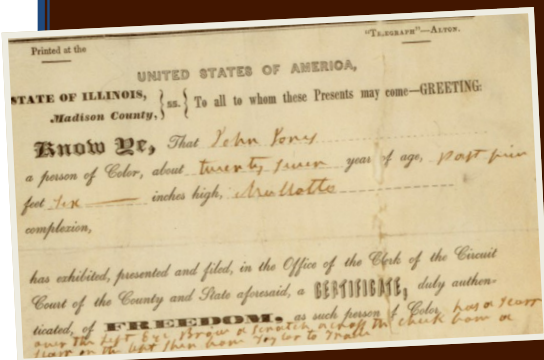 Printed at the
"TELEGRAPH"—ALTON.
UNITED STATES OF AMERICA,
STATE OF ILLINOIS,
Madison County, } ss. { To all to whom these Presents may come—GREETING:
Know Ye, That John Jones
a person of Color, about twenty seven year of age,
feet six inches high, Mullatto
complexion,
has exhibited, presented and filed, in the Office of the Clerk of the Circuit
Court of the County and State aforesaid, a CERTIFICATE, duly authen-
ticated, of FREEDOM, as such person of Color has a Scar
over the left Eye Brow a Scratch across the cheek bone a
Scar on the left Shin bone